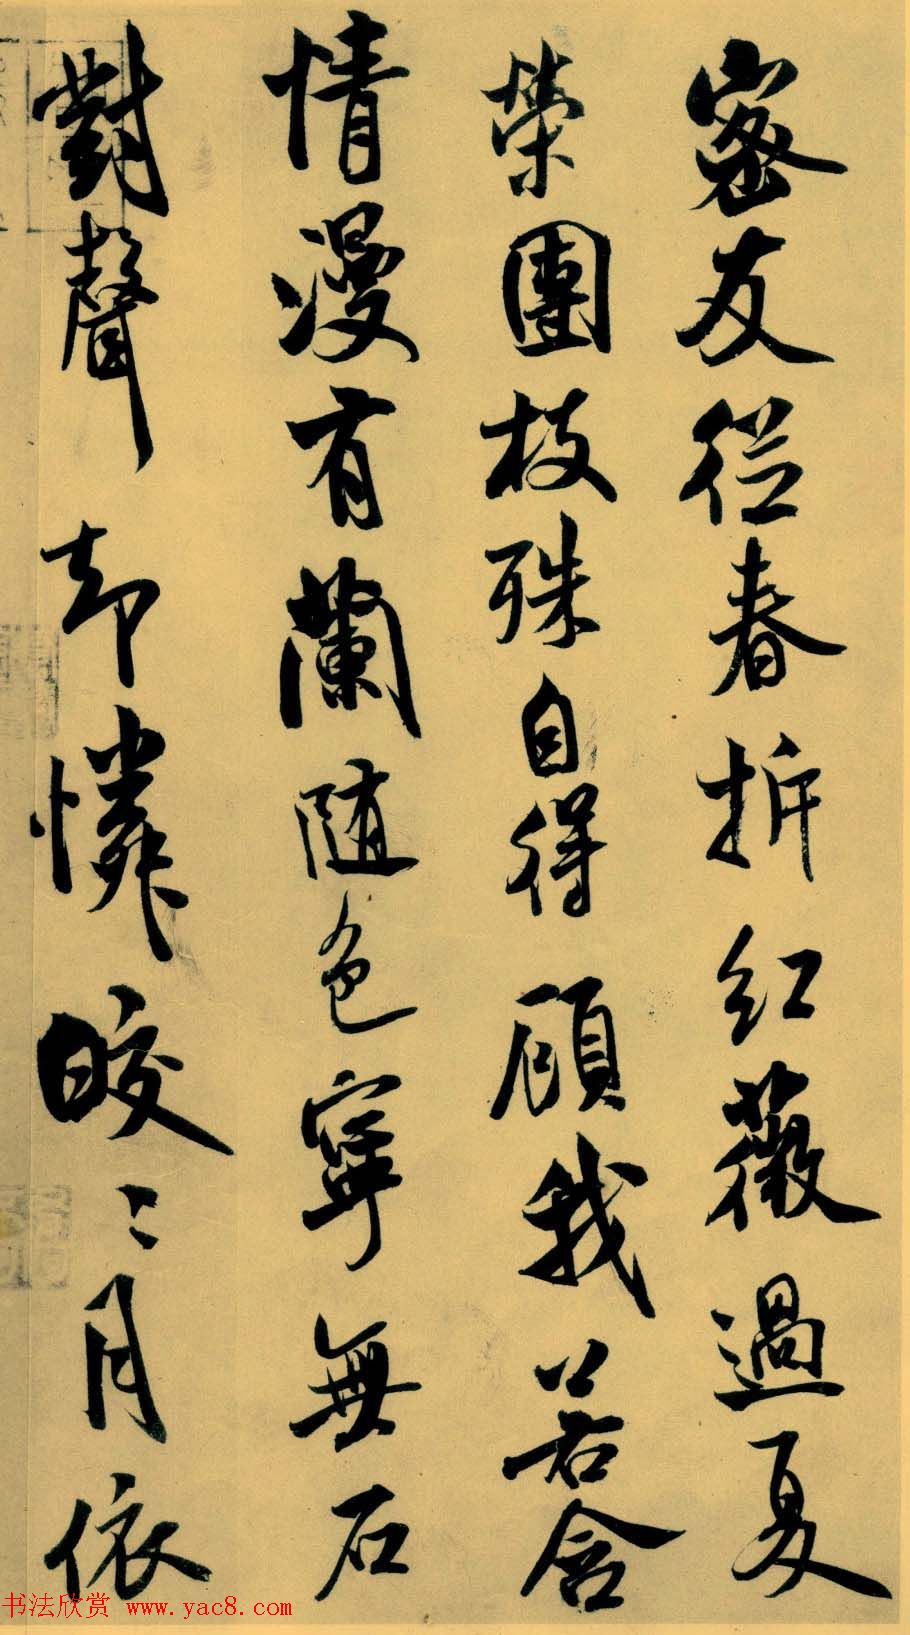 密友從春拆紅薇過夏
榮團枝殊自得顧我若含
情漫有蘭隨色寧無石
對聲却憐皎〻月依
书法欣赏 www.yac8.com